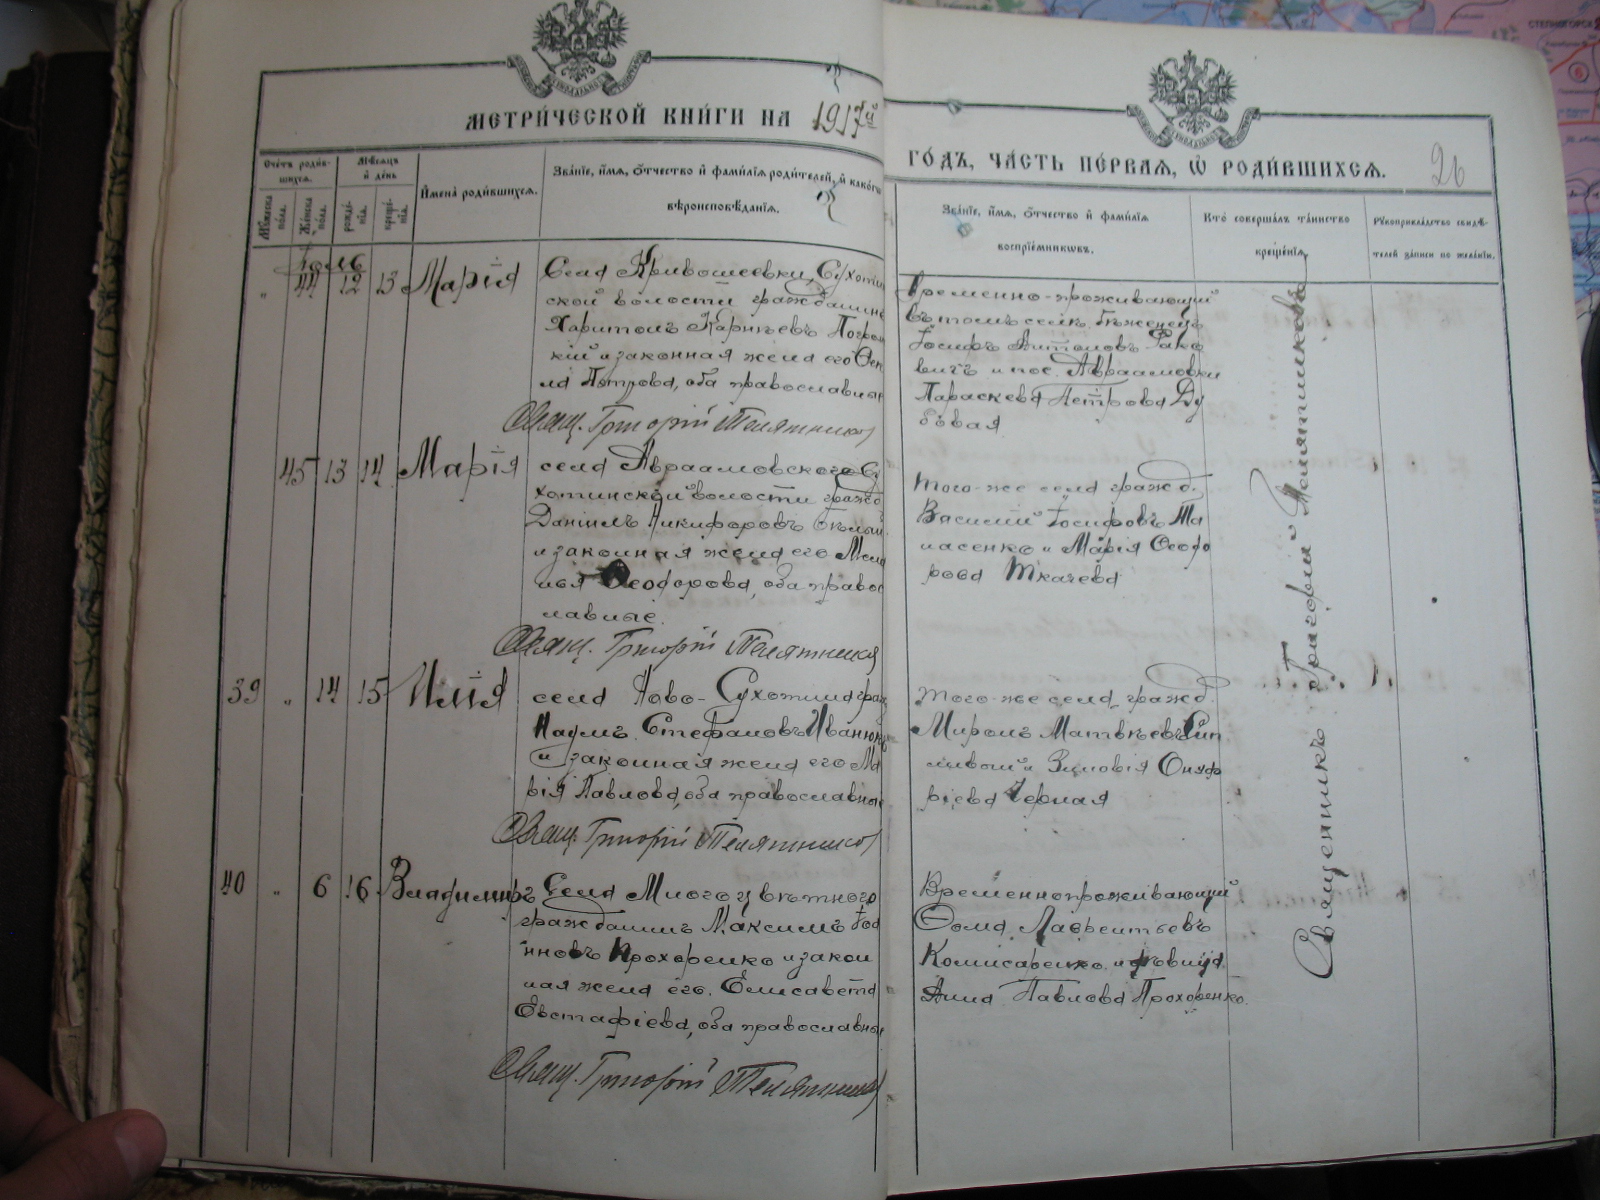 МЕТРИ́ЧЕСКОЙ КНИ́ГИ НА 1917й
ГО́ДЪ, ЧА́СТЬ ПЕ́РВАЯ, Ѡ РОДИ́ВШИХСЯ.
26
Сче́тъ роди́в-
шихся.
Мѣ́сяцъ
и де́нь
Имена̀ роди́вшихся.
Зва́нїе, и́мя, о́тчество и фами́лїя роди́телей, и како́гѡ
вѣроисповѣ́данїя.
Му́жеска
по́ла.
Же́нска
по́ла.
рожде́-
нїя.
креще́-
нїя.
Зва́нїе, и́мя, о́тчество и фами́лїя
воспрїе́мникѡвъ.
Кто̀ соверша́лъ та́инство
креще́нїя.
Рꙋкоприкла́дство свидѣ́-
телей за́писи по жела́нїю.
Іюль
„ 44 12 13 Марія
Села Кривошеевки, Сухотин
ской волости гражданинъ
Харитонъ Карнѣевъ
кій и законная жена его Ѳек
ла Петрова, оба православные
Свящ. Григорій Телятников
Временно-проживающій
въ томъ селѣ бѣженецъ
Іосифъ Антоновъ Рако
вичъ и пос. Авраамовки
Параскева Петрова Ду
бовая
45 13 14 Марія
села Авраамовского Су
хотинской волости гражд
Даніилъ Никифоровъ Бѣлый
и законная жена его Мела
нья Ѳеодорова, оба правос
лавные.
Свящ. Григорій Телятников
Того-же села гражд.
Василій Іосифовъ Па
насенко и Марія Ѳеодо
рова Ткачева
39 „ 14 15 Илія
села Ново-Сухотина граж
Наумъ Стефановъ Иванюк
и законная жена его Ма
рія Павлова, оба православные
Свящ. Григорій Телятников
Того-же села гражд.
Миронъ Матвѣевъ
и Зиновія Онуф
ріева Черная
40 „ 6 16 Владимиръ
Села Многоцвѣтного
гражданинъ Максимъ Іоа
нновъ Прохоренко и закон
ная жена его Елисавета
Евстафіева, оба православные
Свящ. Григорій Телятников
Временнопроживающій
Ѳома Лаврентьевъ
Комисаренко и дѣвица
Анна Павлова Прохоренко.
Священникъ Григорій Телятниковъ